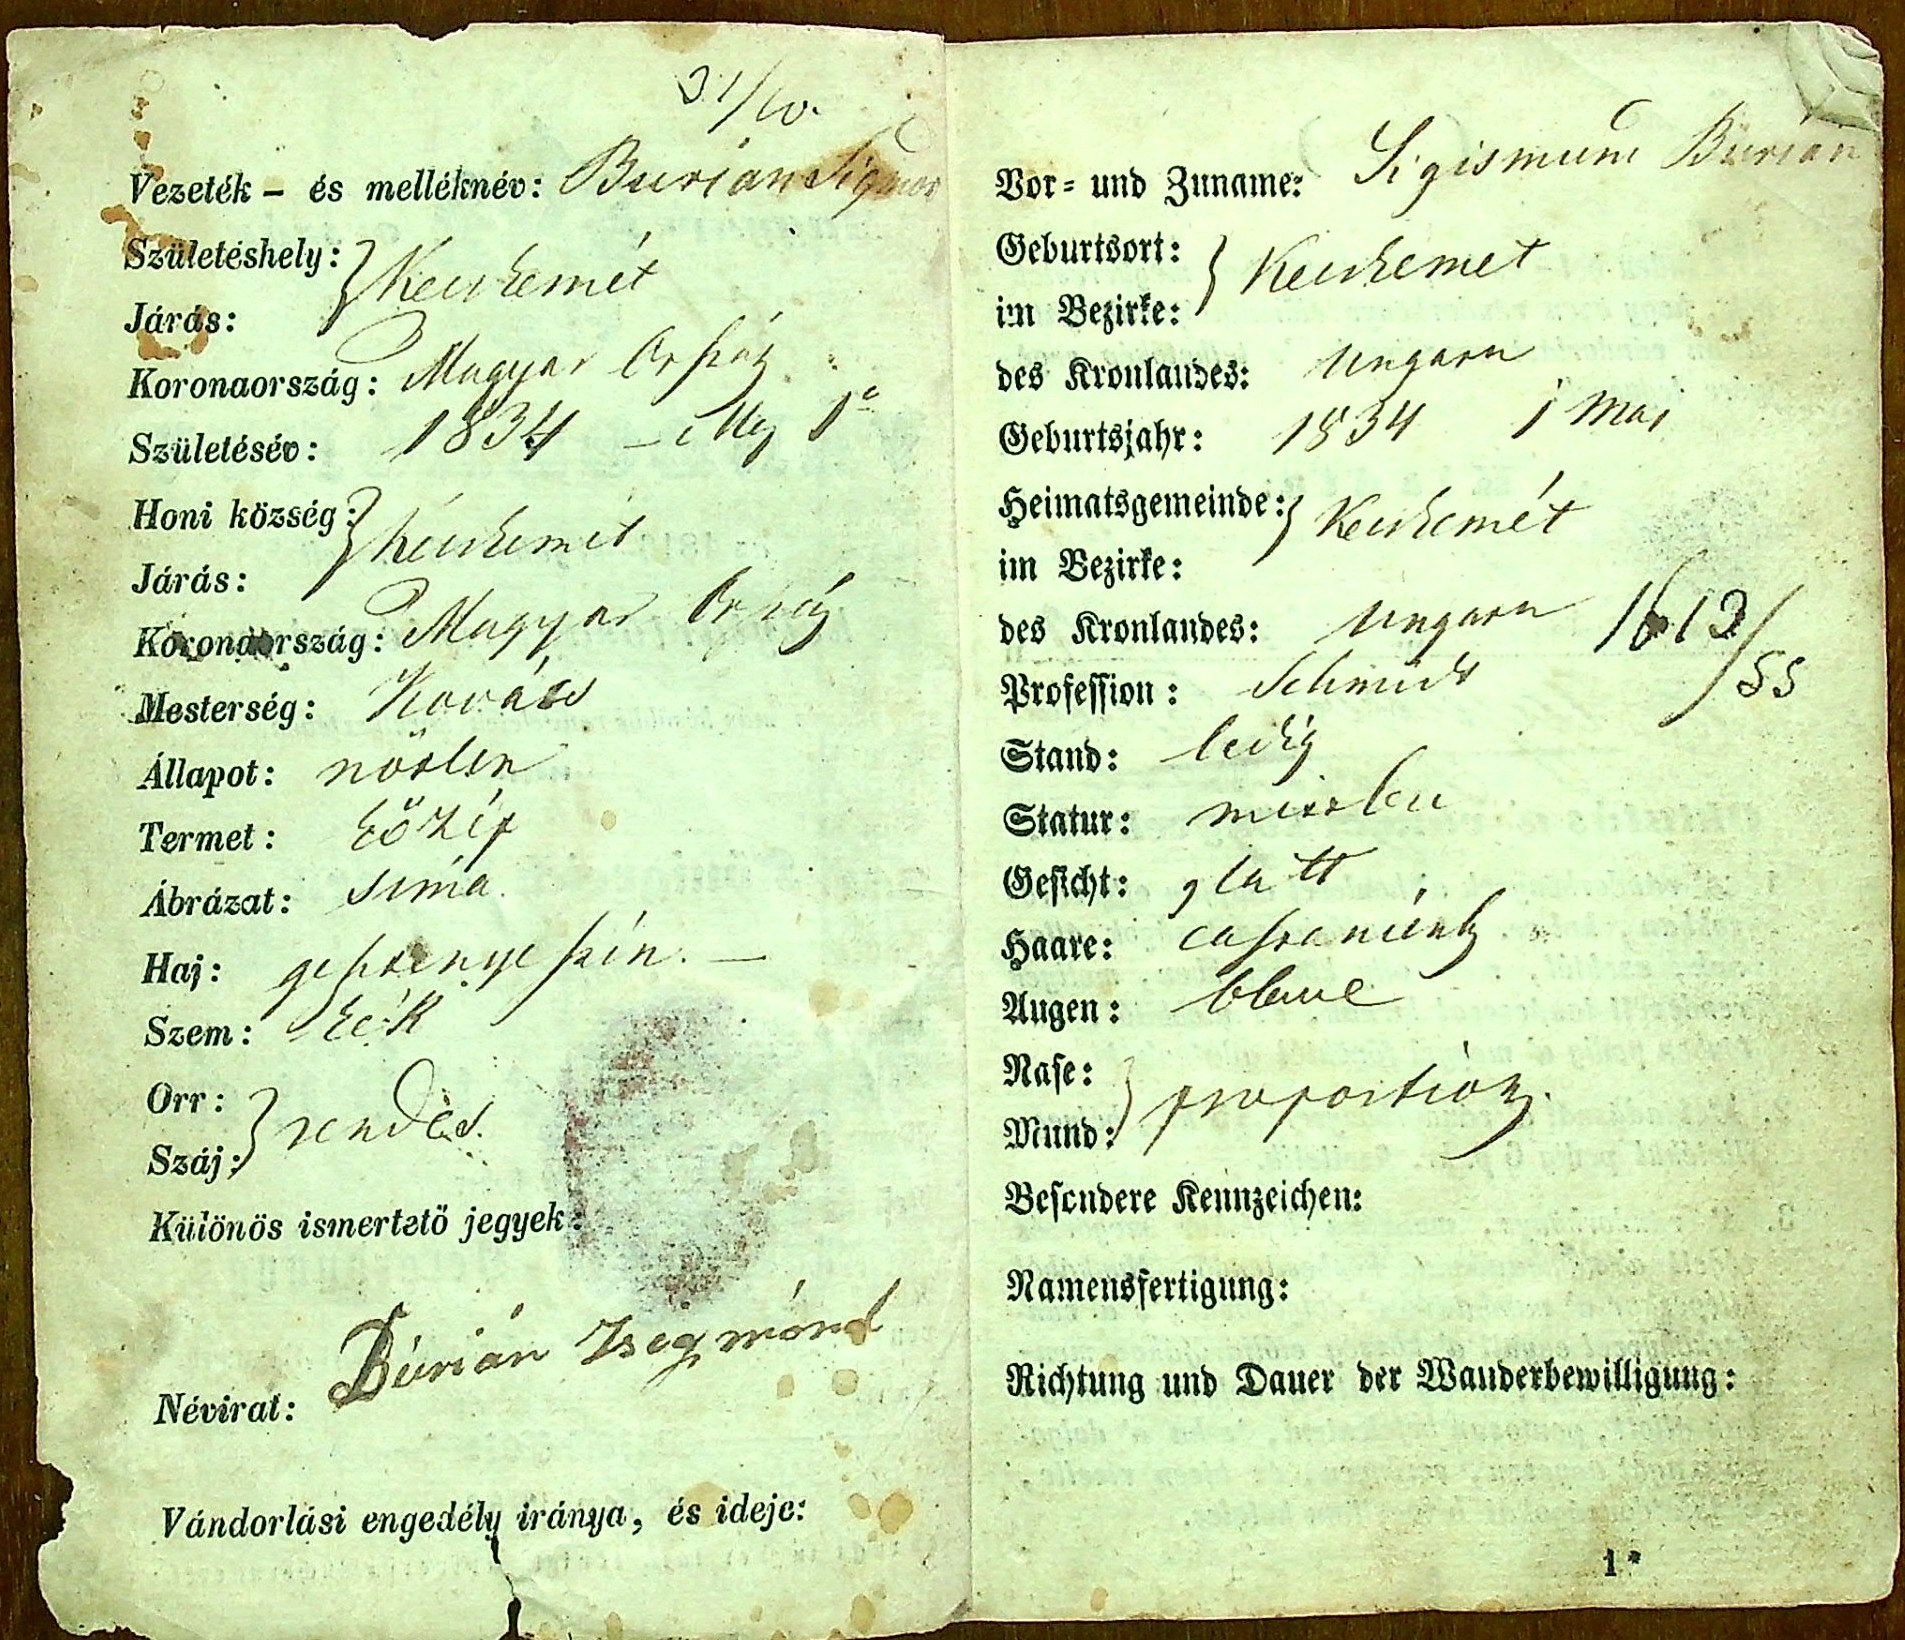 31/
Vezeték - és melléknév: Burián Sigmond
Születéshely: } Kecskemét
Járás:
Koronaország: Magyar Ország
Születésév: 1834 – Máj 1
Honi község: } Kecskemét
Járás:
Koronaország: Magyar Ország
Mesterség: Kovács
Állapot: nőtlen
Termet: közép
Ábrázat: sima.
Haj: gesztenye szín. —
Szem: kék
Orr: } rendes.
Száj:
Különös ismertető jegyek:
Névirat: Búrián Zsigmónd
Vándorlási engedély iránya, és ideje:
Vor- und Zuname: Sigismund Burian
Geburtsort: } Kecskemet
im Bezirke:
des Kronlandes: Ungarn
Geburtsjahr: 1834 1 Mai
Heimatsgemeinde: } Kecskemét
im Bezirke:
des Kronlandes: Ungarn
1613/55
Profession: Schmidt
Stand: ledig
Statur:
Gesicht: glatt
Haare:
Augen: blaue
Nase: } proportion.
Mund:
Besondere Kennzeichen:
Namensfertigung:
Richtung und Dauer der Wanderbewilligung:
1*